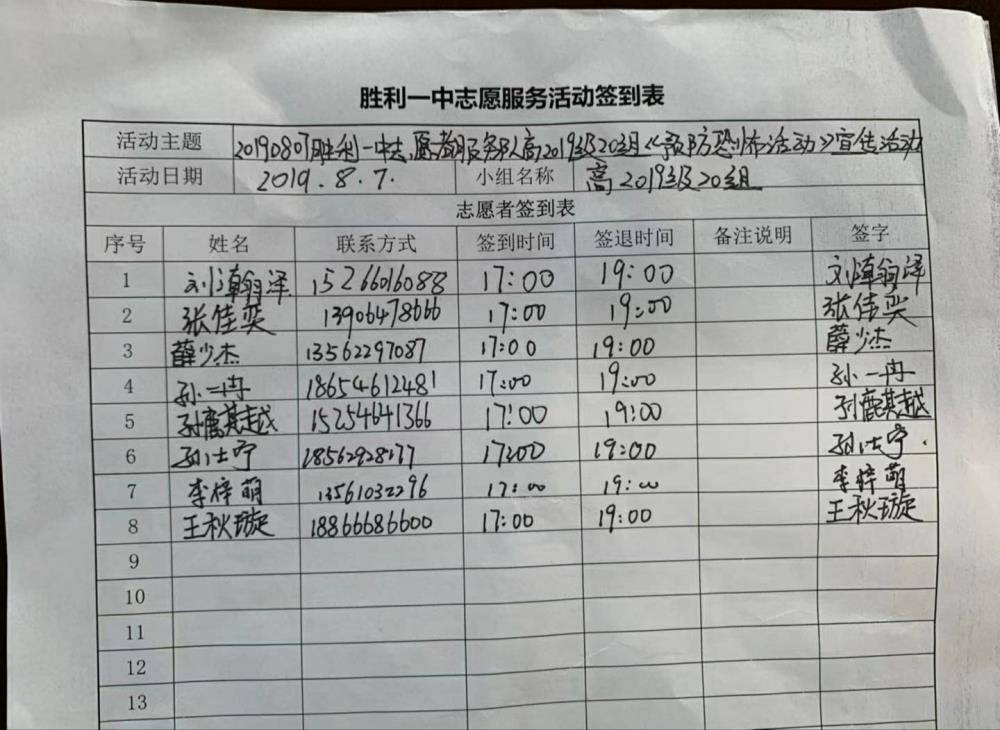 胜利一中志愿服务活动签到表
活动主题 20190807胜利一中志愿者服务队高2019级20组《预防恐怖活动》宣传活动
活动日期 2019.8.7. 小组名称 高2019级20组
志愿者签到表
序号 姓名 联系方式 签到时间 签退时间 备注说明 签字
1 刘瀚泽 15266016088 17:00 19:00 刘瀚泽
2 张佳奕 13906478666 17:00 19:00 张佳奕
3 薛少杰 13562297087 17:00 19:00 薛少杰
4 孙一冉 18654612481 17:00 19:00 孙一冉
5 15254641366 17:00 19:00
6 孙仕宁 17:00 19:00 孙仕宁.
7 李梓萌 13561032296 17:00 19:00 李梓萌
8 王秋璇 18866686600 17:00 19:00 王秋璇
9
10
11
12
13